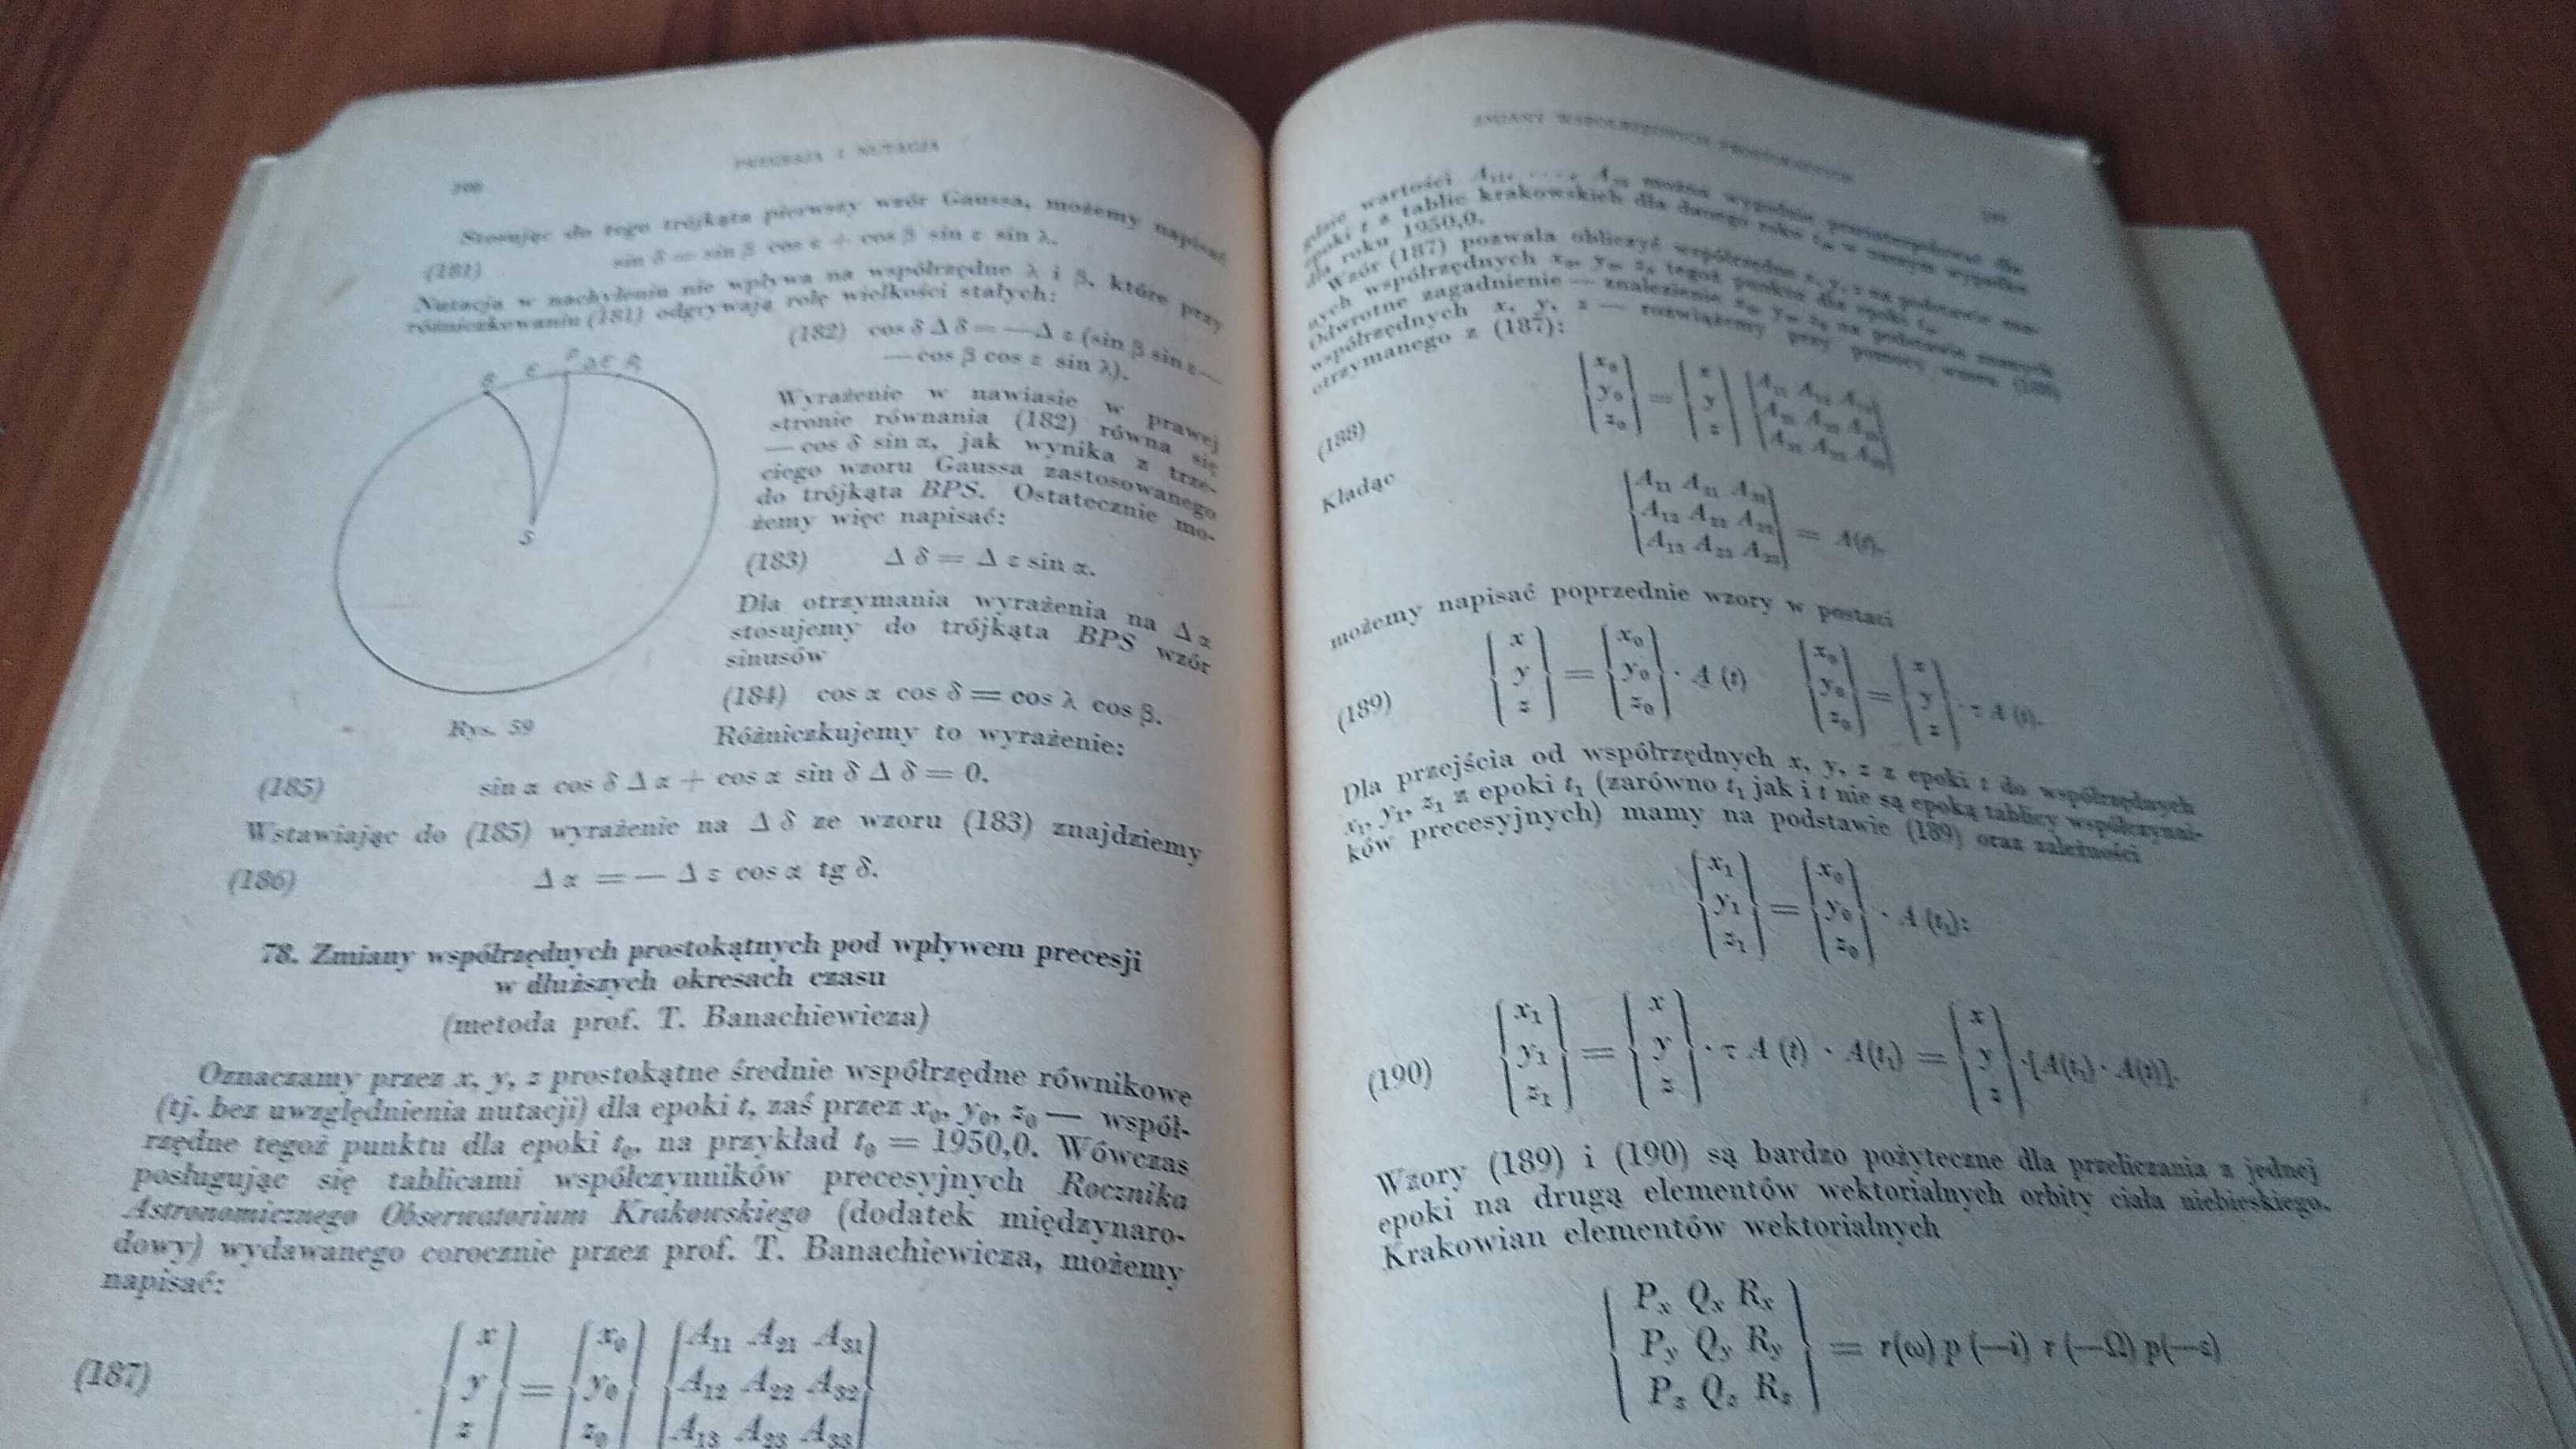 PRECESJA I NUTACJA
Stosując do tego trójkąta pierwszy wzór Gaussa, możemy napisać
(181) sin δ = sin β cos ε + cos β sin ε sin λ.
Nutacja w nachyleniu nie wpływa na współrzędne λ i β, które przy
różniczkowaniu (181) odgrywają rolę wielkości stałych:
(182) cos δ Δ δ = —Δ ε (sin β sin ε —
— cos β cos ε sin λ).
Wyrażenie w nawiasie w prawej
stronie równania (182) równa się
— cos δ sin α, jak wynika z trze-
ciego wzoru Gaussa zastosowanego
do trójkąta BPS. Ostatecznie mo-
żemy więc napisać:
(183) Δ δ = Δ ε sin α.
Dla otrzymania wyrażenia na Δ α
stosujemy do trójkąta BPS wzór
sinusów
(184) cos α cos δ = cos λ cos β.
S
Rys. 59
Różniczkujemy to wyrażenie:
(185) sin α cos δ Δ α + cos α sin δ Δ δ = 0.
Wstawiając do (185) wyrażenie na Δ δ ze wzoru (183) znajdziemy
(186) Δ α = — Δ ε cos α tg δ.
78. Zmiany współrzędnych prostokątnych pod wpływem precesji
w dłuższych okresach czasu
(metoda prof. T. Banachiewicza)
Oznaczamy przez x, y, z prostokątne średnie współrzędne równikowe
(tj. bez uwzględnienia nutacji) dla epoki t, zaś przez x₀, y₀, z₀ — współ-
rzędne tegoż punktu dla epoki t₀, na przykład t₀ = 1950,0. Wówczas
posługując się tablicami współczynników precesyjnych Rocznika
Astronomicznego Obserwatorium Krakowskiego (dodatek międzynaro-
dowy) wydawanego corocznie przez prof. T. Banachiewicza, możemy
napisać:
x x₀ A₁₁ A₂₁ A₃₁
(187) y = y₀ A₁₂ A₂₂ A₃₂
z z₀ A₁₃ A₂₃ A₃₃
ZMIANY WSPÓŁRZĘDNYCH PROSTOKĄTNYCH
gdzie wartości można wygodnie przeinterpolować dla
epoki t z tablic krakowskich dla danego roku t₀, w naszym wypadku
dla roku 1950,0.
Wzór (187) pozwala obliczyć współrzędne x, y, z na podstawie zna-
nych współrzędnych x₀, y₀, z₀ tegoż punktu dla epoki t₀.
Odwrotne zagadnienie — znalezienie x₀, y₀, z₀ na podstawie znanych
współrzędnych x, y, z — rozwiążemy przy pomocy wzoru (188)
otrzymanego z (187):
x₀ x
(188) y₀ = y
z₀ z
Kładąc
= A(t),
możemy napisać poprzednie wzory w postaci
x x₀ x₀ x
(189) y = y₀ · A (t) y₀ = y · τ A (t).
z z₀ z₀ z
Dla przejścia od współrzędnych x, y, z z epoki t do współrzędnych
x₁, y₁, z₁ z epoki t₁ (zarówno t₁ jak i t nie są epoką tablicy współczynni-
ków precesyjnych) mamy na podstawie (189) oraz zależności
x₁ x₀
y₁ = y₀ · A (t₁):
z₁ z₀
x₁ x x
(190) y₁ = y · τ A (t) · A(t₁) = y ·[A(t₁) · A(t)].
z₁ z z
Wzory (189) i (190) są bardzo pożyteczne dla przeliczania z jednej
epoki na drugą elementów wektorialnych orbity ciała niebieskiego.
Krakowian elementów wektorialnych
Pₓ Qₓ Rₓ
P_y Q_y R_y = r(ω) p (—i) r (—Ω) p(—ε)
P_z Q_z R_z